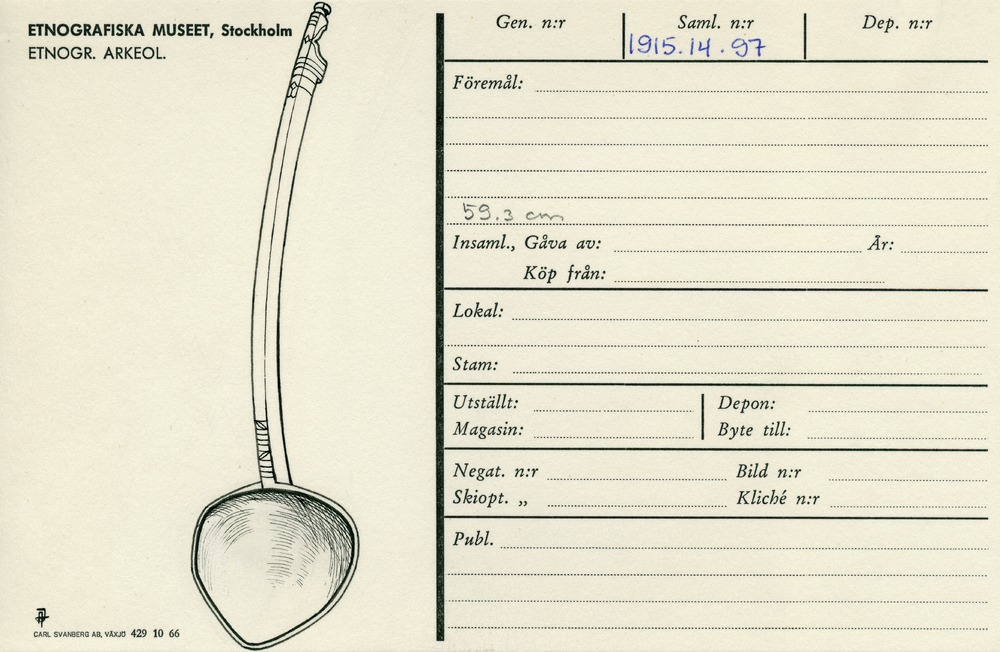 ETNOGRAFISKA MUSEET, Stockholm
ETNOGR. ARKEOL.
CARL SVANBERG AB, VÄXJÖ 429 10 66
Gen. n:r Saml. n:r Dep. n:r
1915.14.97
Föremål:
59.3 cm
Insaml., Gåva av: År:
Köp från:
Lokal:
Stam:
Utställt: Depon:
Magasin: Byte till:
Negat. n:r Bild n:r
Skiopt. „ Kliché n:r
Publ.